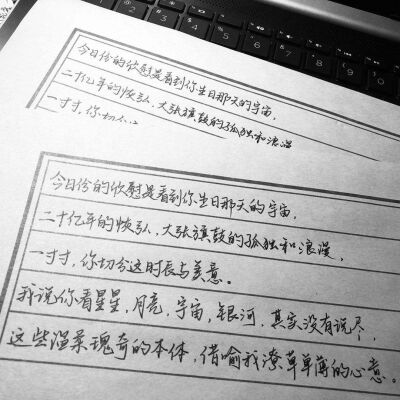 今日份的欣慰是看到你生日那天的宇宙,
二十亿年的恢弘,大张旗鼓的孤独和浪漫
一寸寸,你切
今日份的欣慰是看到你生日那天的宇宙,
二十亿年的恢弘,大张旗鼓的孤独和浪漫,
一寸寸,你切合这时辰与美意。
我说你看星星,月亮,宇宙,银河,其实没有说尽,
这些温柔瑰奇的本体,借喻我潦草单薄的心意。